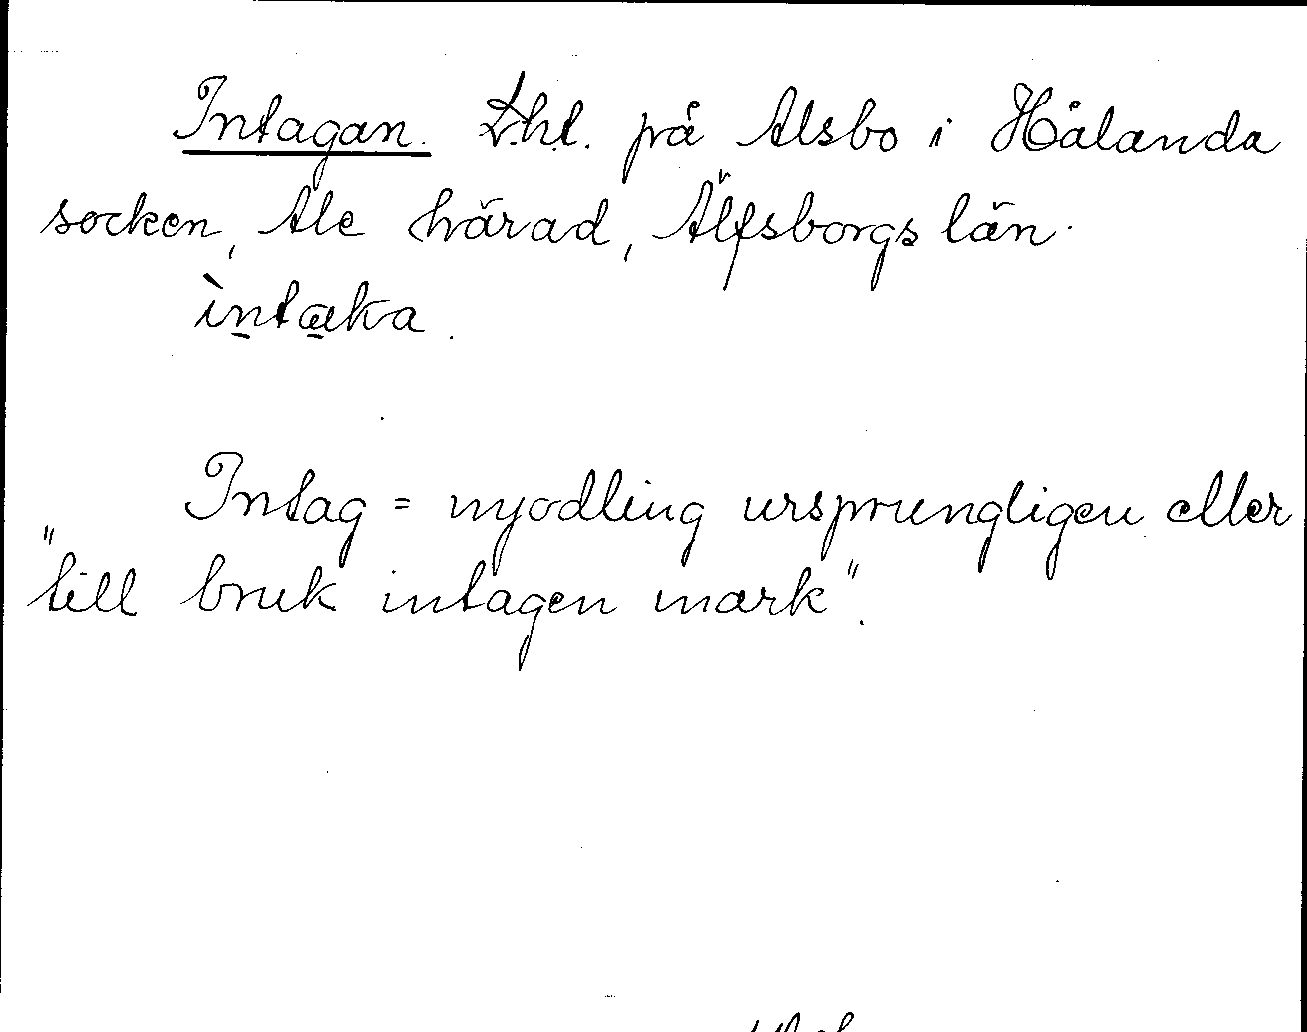 Intagan. Lht. på Alsbo i Hålanda
socken, Ale härad, Älfsborgs län.
ìntaka.
Intag = nyodling ursprungligen eller
"till bruk intagen mark".